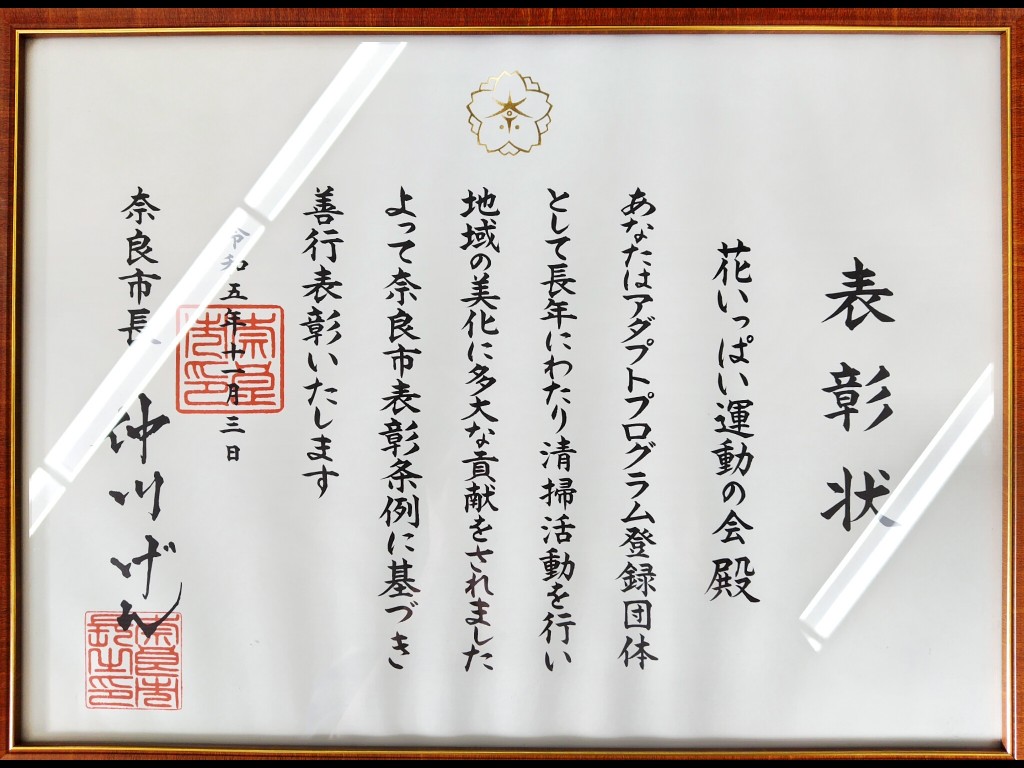 表彰状
花いっぱい運動の会殿
あなたはアダプトプログラム登録団体
として長年にわたり清掃活動を行い
地域の美化に多大な貢献をされました
よって奈良市表彰条例に基づき
善行表彰いたします
令和五年十一月三日
奈良市長 仲川げん
奈良市印
奈良市長之印